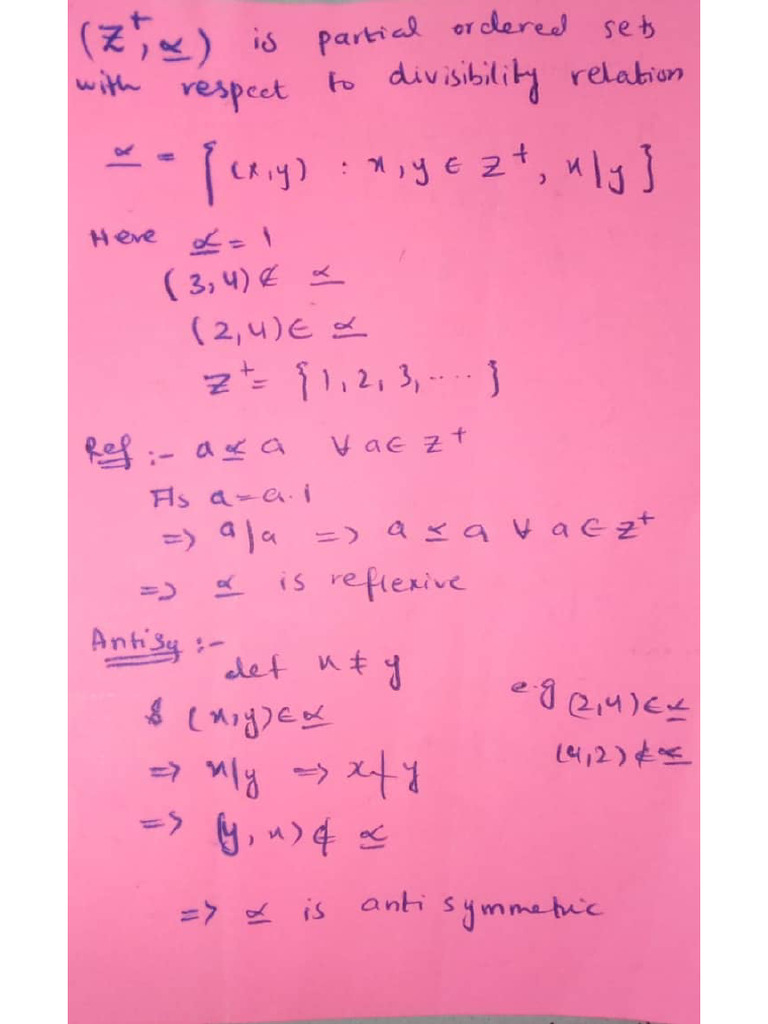 (Z⁺, ⪯) is partial ordered sets
with respect to divisibility relation
⪯ = { (x,y) : x,y ∈ Z⁺, x|y }
Here ⪯ = |
(3,4) ∉ ⪯
(2,4) ∈ ⪯
Z⁺ = {1, 2, 3, ..... }
Ref :- a ⪯ a ∀ a ∈ Z⁺
As a = a.1
=> a|a => a ⪯ a ∀ a ∈ Z⁺
=> ⪯ is reflexive
Antisy :-
let x ≠ y
& (x,y) ∈ ⪯
e.g (2,4) ∈ ⪯
(4,2) ∉ ⪯
=> x|y => x∤y
=> (y,x) ∉ ⪯
=> ⪯ is anti symmetric